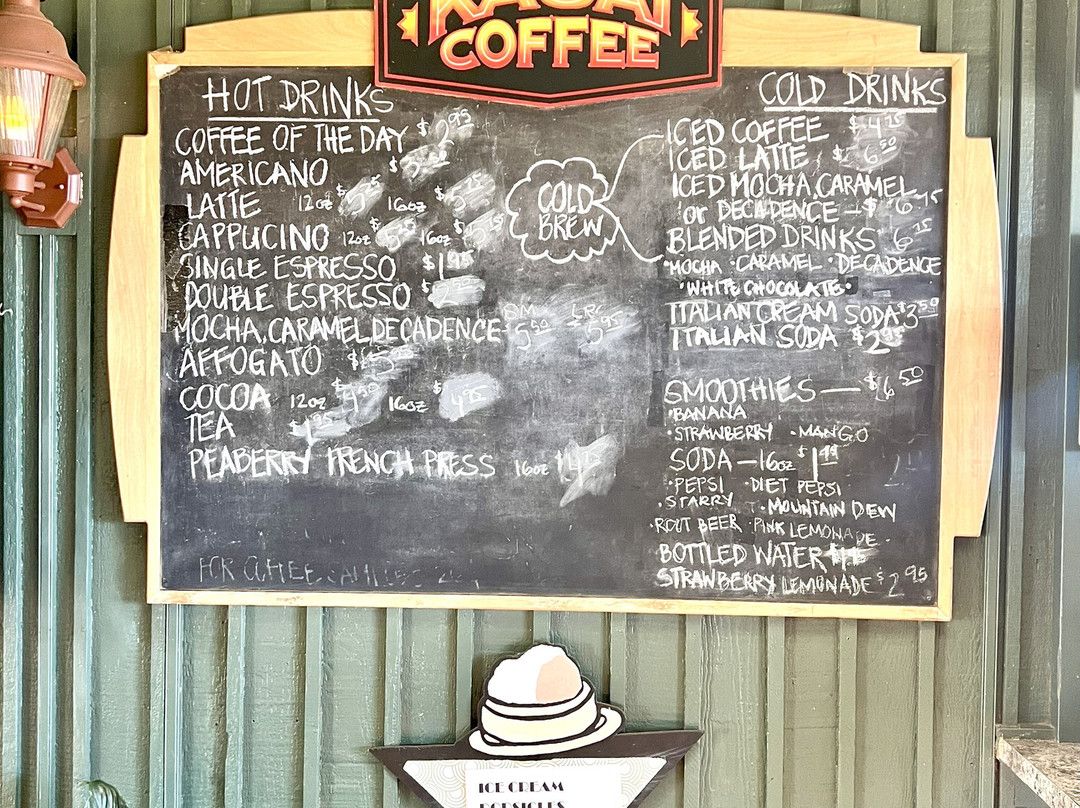 COFFEE
HOT DRINKS
COFFEE OF THE DAY $2.95
AMERICANO
LATTE 12oz 16oz $5.25
CAPPUCINO 12oz 16oz
SINGLE ESPRESSO $1.95
DOUBLE ESPRESSO
MOCHA, CARAMEL, DECADENCE SM 5.50 LRG 5.95
AFFOGATO
COCOA 12oz 16oz $4.95
TEA
PEABERRY FRENCH PRESS 16oz
FOR COFFEE
COLD BREW
COLD DRINKS
ICED COFFEE $4.25
ICED LATTE $6.50
ICED MOCHA, CARAMEL
or DECADENCE — $6.75
BLENDED DRINKS 6.75
•MOCHA •CARAMEL •DECADENCE
•WHITE CHOCOLATE•
ITALIAN CREAM SODA $3.50
ITALIAN SODA $2.95
SMOOTHIES — $6.50
•BANANA
•STRAWBERRY •MANGO
SODA — 16oz $1.99
•PEPSI •DIET PEPSI
•STARRY •MOUNTAIN DEW
•ROOT BEER •PINK LEMONADE
BOTTLED WATER
STRAWBERRY LEMONADE $2.95
ICE CREAM
POPSICLES